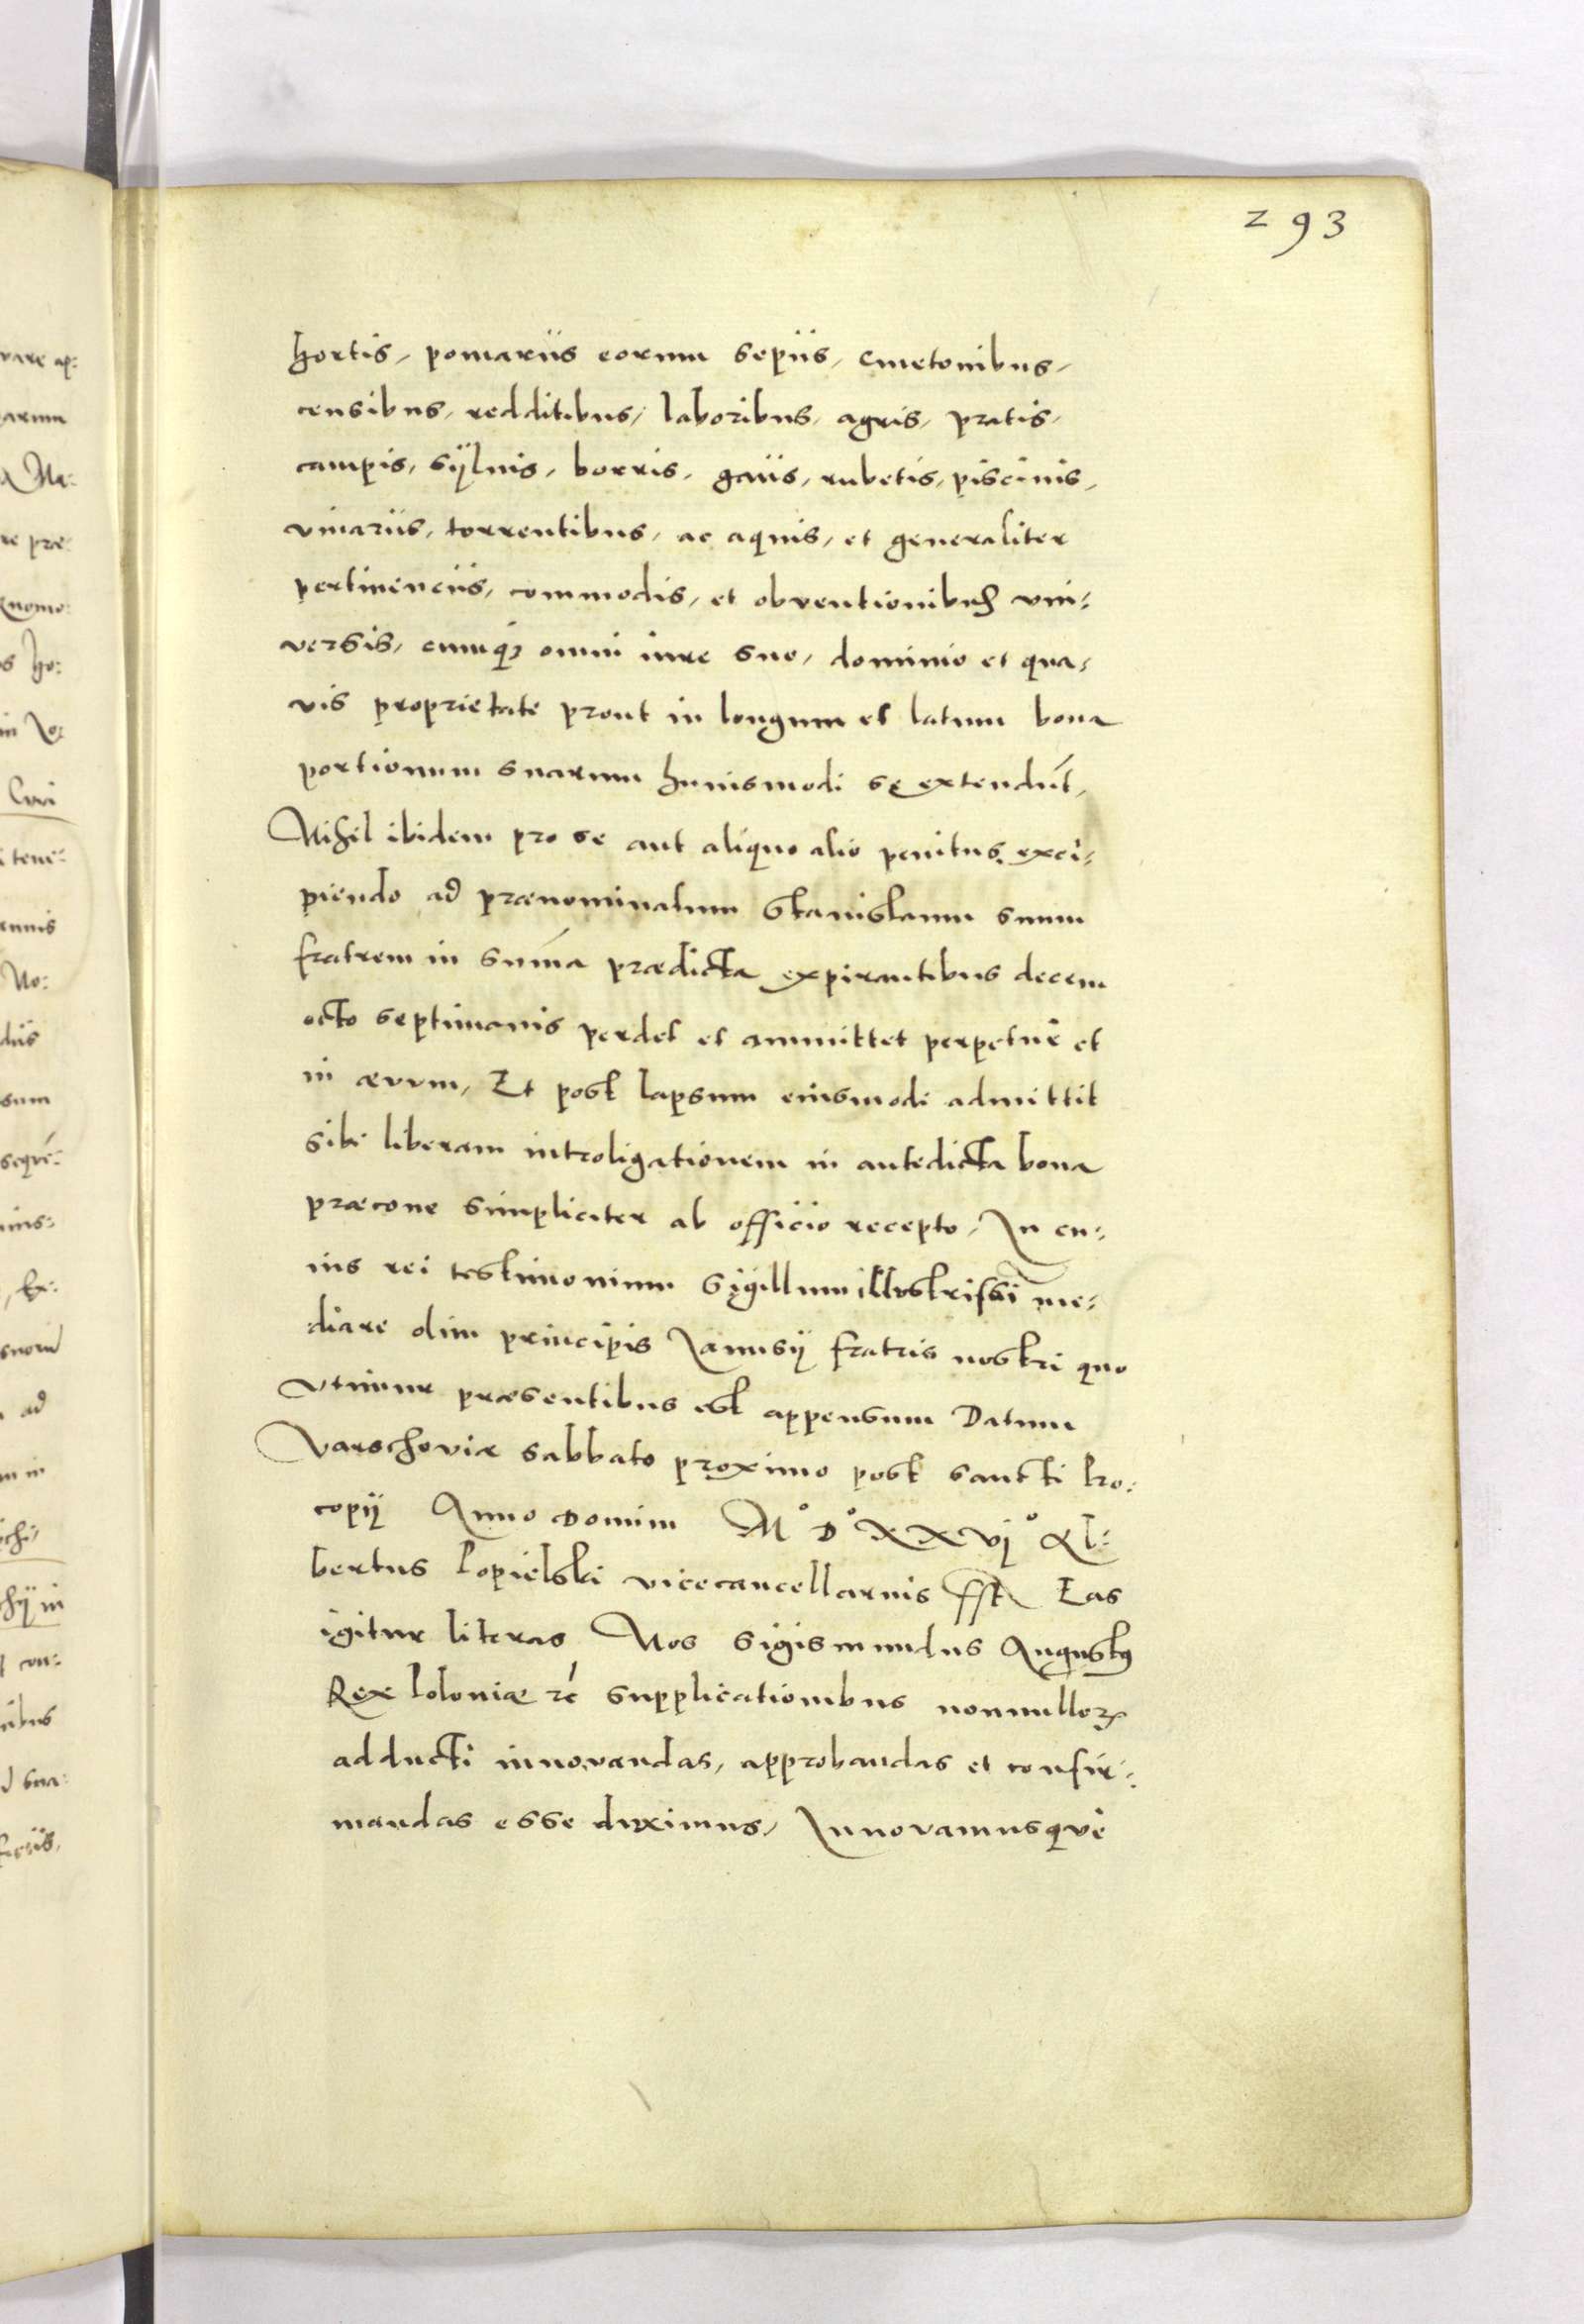 293
hortis, pomariis eorum sepiis, cmetonibus,
censibus, redditibus, laboribus, agris, pratis,
campis, sÿluis, borris, gaiis, rubetis, piscinis,
viuariis, torrentibus, ac aquis, et generaliter
pertinenciis, commodis, et obventionibus vni:
versis, cumq₃ omni iure suo, dominio et qua:
vis proprietate prout in longum et latum bona
portionum suarum huiusmodi se extendūt,
Nihil ibidem pro se aut aliquo alio penitus exci:
piendo ad prænominatum Stanislaum suum
fratrem in sum̄a prædicta expirantibus decem
octo septimanis perdet et ammittet perpetuè et
in ævum, Et post lapsum eiusmodi admittit
sibi liberam introligationem in antedicta bona
præcone simpliciter ab officio recepto, In cu:
ius rei testimonium sigillum illustrissi me:
diare olim principis Janusÿ fratris nostri quo
vtimur præsentibus est appensum Datum
Varschoviæ sabbato proximo post sancti Pro:
copÿ Anno Domini M° D° XXvj° Al:
bertus Popielski vicecancellarius sst Eas
igitur literas Nos Sigismundus Augustꝯ
Rex Poloniæ ⁊c̄ supplicationibus nonnulloꝝ
adducti innovandas, approbandas et confir:
mandas esse duximus, Innovamusquè
vare ap:
arum
Ma:
re præ:
nomo:
s ho:
in Vo:
Cui
tene:
annis
No:
diis
sum
sequē:
ius:
, Ex:
ad
m in
chi,
chÿ in
con:
nibus
d sua: